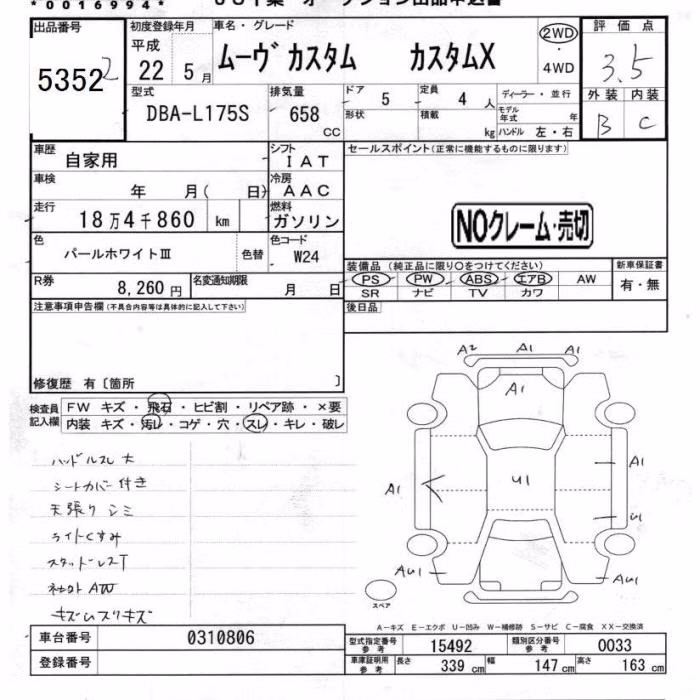 *0016994*
出品番号 初度登録年月 車名・グレード 2WD 評価点
5352 2 平成 22 5月 ムーヴ カスタム カスタムX ・ 4WD 3.5
型式 排気量 ドア 5 定員 4人 ディーラー・並行 外装 内装
DBA-L175S 658 CC 形状 積載 kg モデル年式 年 ハンドル 左・右 B C
車歴 自家用 シフト IAT セールスポイント(正常に機能するものに限ります)
車検 年 月( 日) 冷房 AAC
走行 18万4千860 km 燃料 ガソリン NOクレーム・売切
色 パールホワイトⅢ 色替 色コード W24
装備品 (純正品に限り○をつけてください) 新車保証書
R券 8,260円 名変通知期限 月 日 PS PW ABS エアB AW 有・無
SR ナビ TV カワ
注意事項申告欄(不具合内容等は具体的に記入して下さい) 後日品
修復歴 有〔箇所 〕
検査員記入欄 FW キズ・飛石・ヒビ割・リペア跡・×要
内装 キズ・汚レ・コゲ・穴・スレ・キレ・破レ
ハンドルスレ大
シートカバー付き
天張りシミ
ライトくすみ
スタッドレスT
社外AW
キズ スリキズ
A2 A1 A1
A1
A1 U1 A1
U1
AU1 AU1
スペア
A-キズ E-エクボ U-凹み W-補修跡 S-サビ C-腐食 XX-交換済
車台番号 0310806 型式指定番号 参考 15492 類別区分番号 参考 0033
登録番号 車庫証明用 参考 長さ 339 cm 幅 147 cm 高さ 163 cm